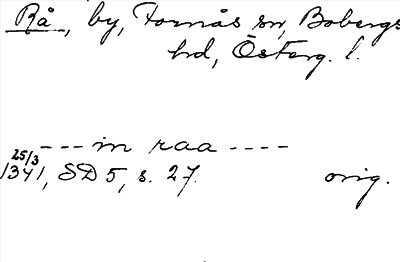 Rå, by, Fornås sn, Bobergs
hd, Österg. l.
---in raa----
25/3
1341, SD 5, s. 27.
orig.